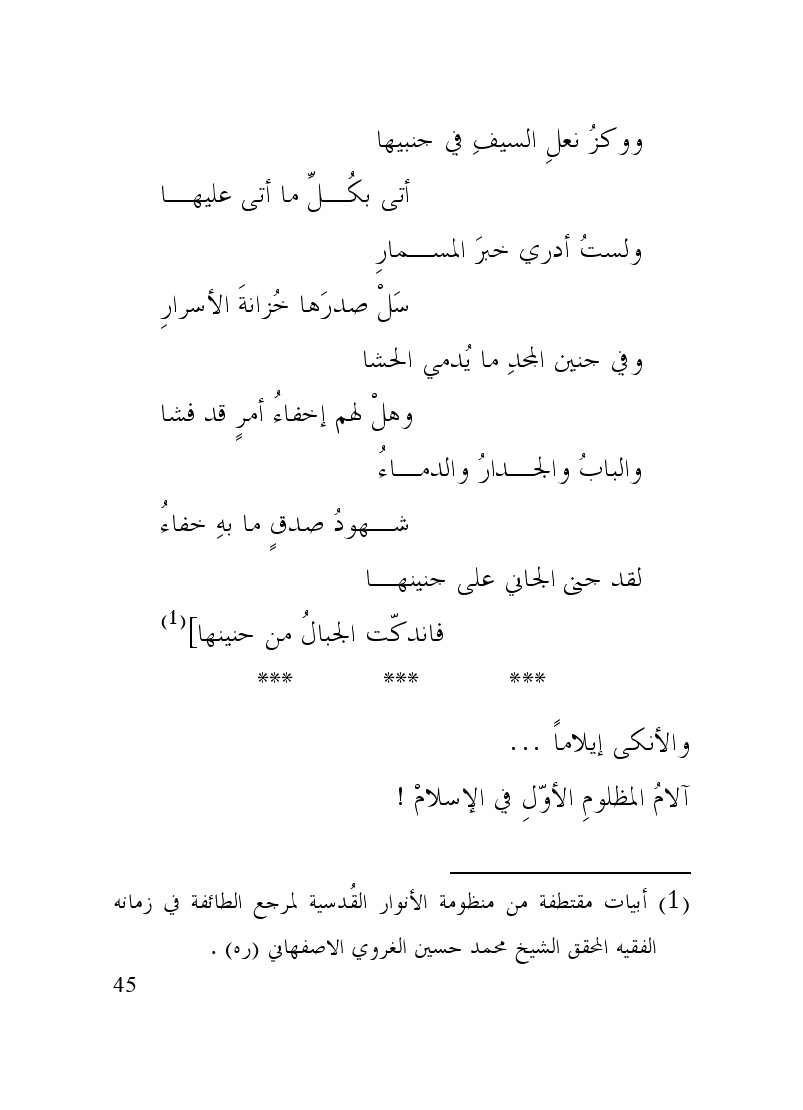 ووكزُ نعلِ السيفِ في جنبيها
أتى بكُـــلِّ ما أتى عليهـــا
ولستُ أدري خبرَ المســـمارِ
سَلْ صدرَها خُزانةَ الأسرارِ
وفي جنين المجدِ ما يُدمي الحشا
وهلْ لهم إخفاءُ أمرٍ قد فشا
والبابُ والجـــدارُ والدمـــاءُ
شـــهودُ صدقٍ ما بهِ خفاءُ
لقد جنى الجاني على جنينهـــا
فاندكّت الجبالُ من حنينها](1)
*** *** ***
والأنكى إيلاماً ...
آلامُ المظلومِ الأوّلِ في الإسلامْ !
(1) أبيات مقتطفة من منظومة الأنوار القُدسية لمرجع الطائفة في زمانه
الفقيه المحقق الشيخ محمد حسين الغروي الاصفهاني (ره) .
45